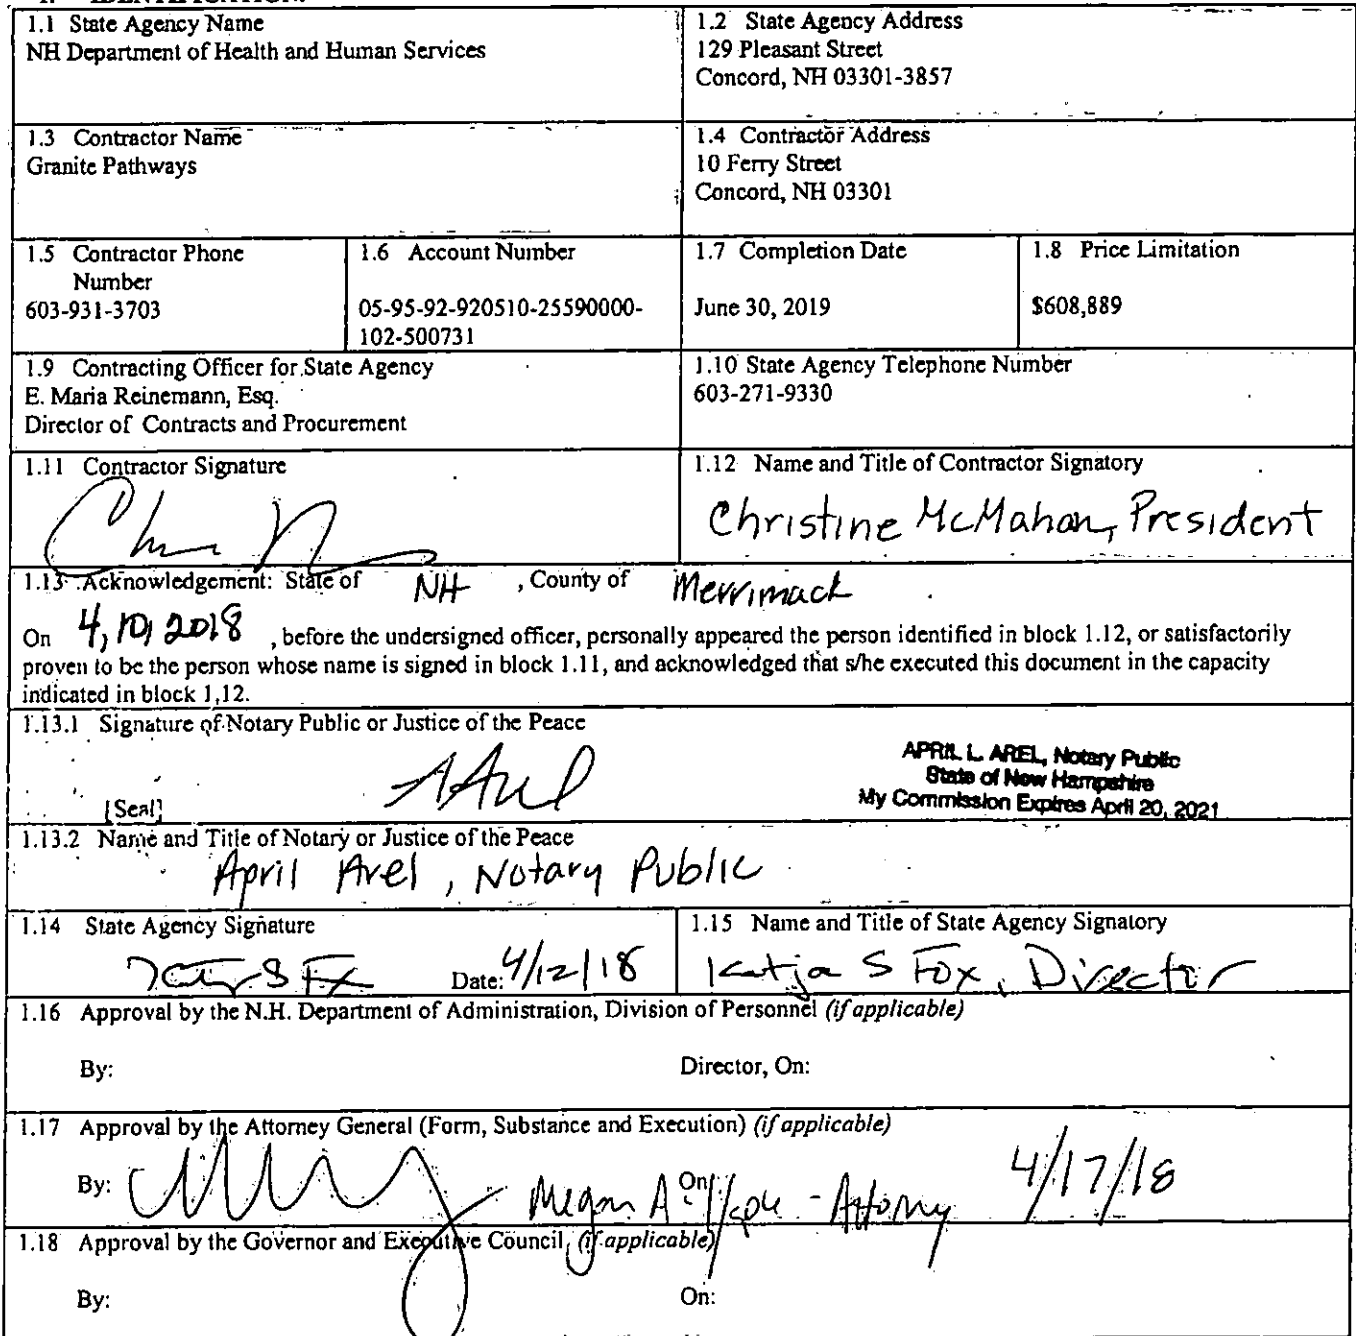 1.1 State Agency Name
NH Department of Health and Human Services
1.2 State Agency Address
129 Pleasant Street
Concord, NH 03301-3857
1.3 Contractor Name
Granite Pathways
1.4 Contractor Address
10 Ferry Street
Concord, NH 03301
1.5 Contractor Phone
Number
603-931-3703
1.6 Account Number
05-95-92-920510-25590000-
102-500731
1.7 Completion Date
June 30, 2019
1.8 Price Limitation
$608,889
1.9 Contracting Officer for State Agency
E. Maria Reinemann, Esq.
Director of Contracts and Procurement
1.10 State Agency Telephone Number
603-271-9330
1.11 Contractor Signature
1.12 Name and Title of Contractor Signatory
Christine McMahon, President
1.13 Acknowledgement: State of NH , County of Merrimack
On 4,10,2018 , before the undersigned officer, personally appeared the person identified in block 1.12, or satisfactorily
proven to be the person whose name is signed in block 1.11, and acknowledged that s/he executed this document in the capacity
indicated in block 1.12.
1.13.1 Signature of Notary Public or Justice of the Peace
[Seal]
APRIL L. AREL, Notary Public
State of New Hampshire
My Commission Expires April 20, 2021
1.13.2 Name and Title of Notary or Justice of the Peace
April Arel, Notary Public
1.14 State Agency Signature
Date: 4/12/18
1.15 Name and Title of State Agency Signatory
Katja S Fox, Director
1.16 Approval by the N.H. Department of Administration, Division of Personnel (if applicable)
By: Director, On:
1.17 Approval by the Attorney General (Form, Substance and Execution) (if applicable)
By: Megan A. On: - Attorney 4/17/18
1.18 Approval by the Governor and Executive Council (if applicable)
By: On: